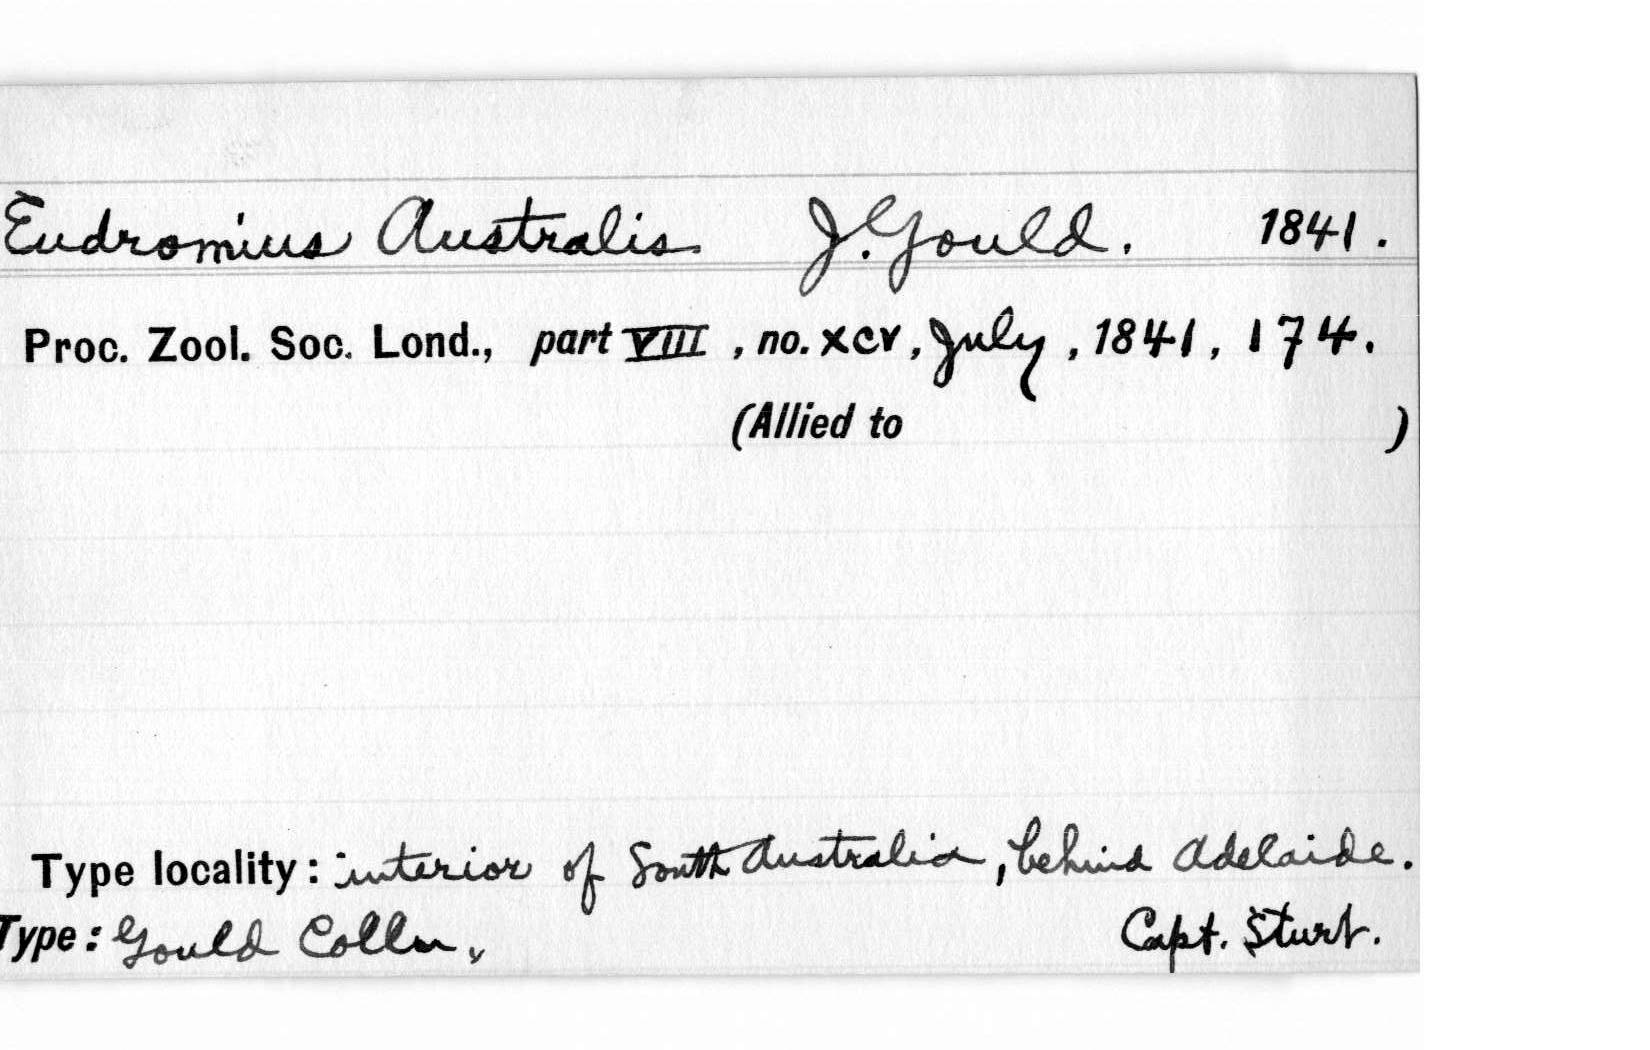 Eudromius Australis J. Gould. 1841.
Proc. Zool. Soc. Lond., part VIII, no. xcv, July, 1841, 174.
(Allied to )
Type locality: interior of South Australia, behind Adelaide.
Type: Gould Colln. Capt. Sturt.